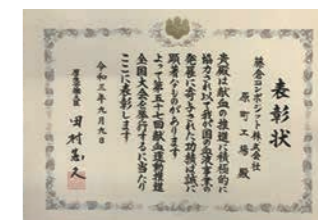 表彰状
藤倉コンポジット株式会社
原町工場 殿
貴殿は献血の推進に積極的に
協力され以て我が国の血液事業の
発展に寄与された功績は誠に
顕著なものがあります
よって第五十七回献血運動推進
全国大会を挙行するに当たり
ここに表彰します
令和三年九月九日
厚生労働大臣 田村憲久